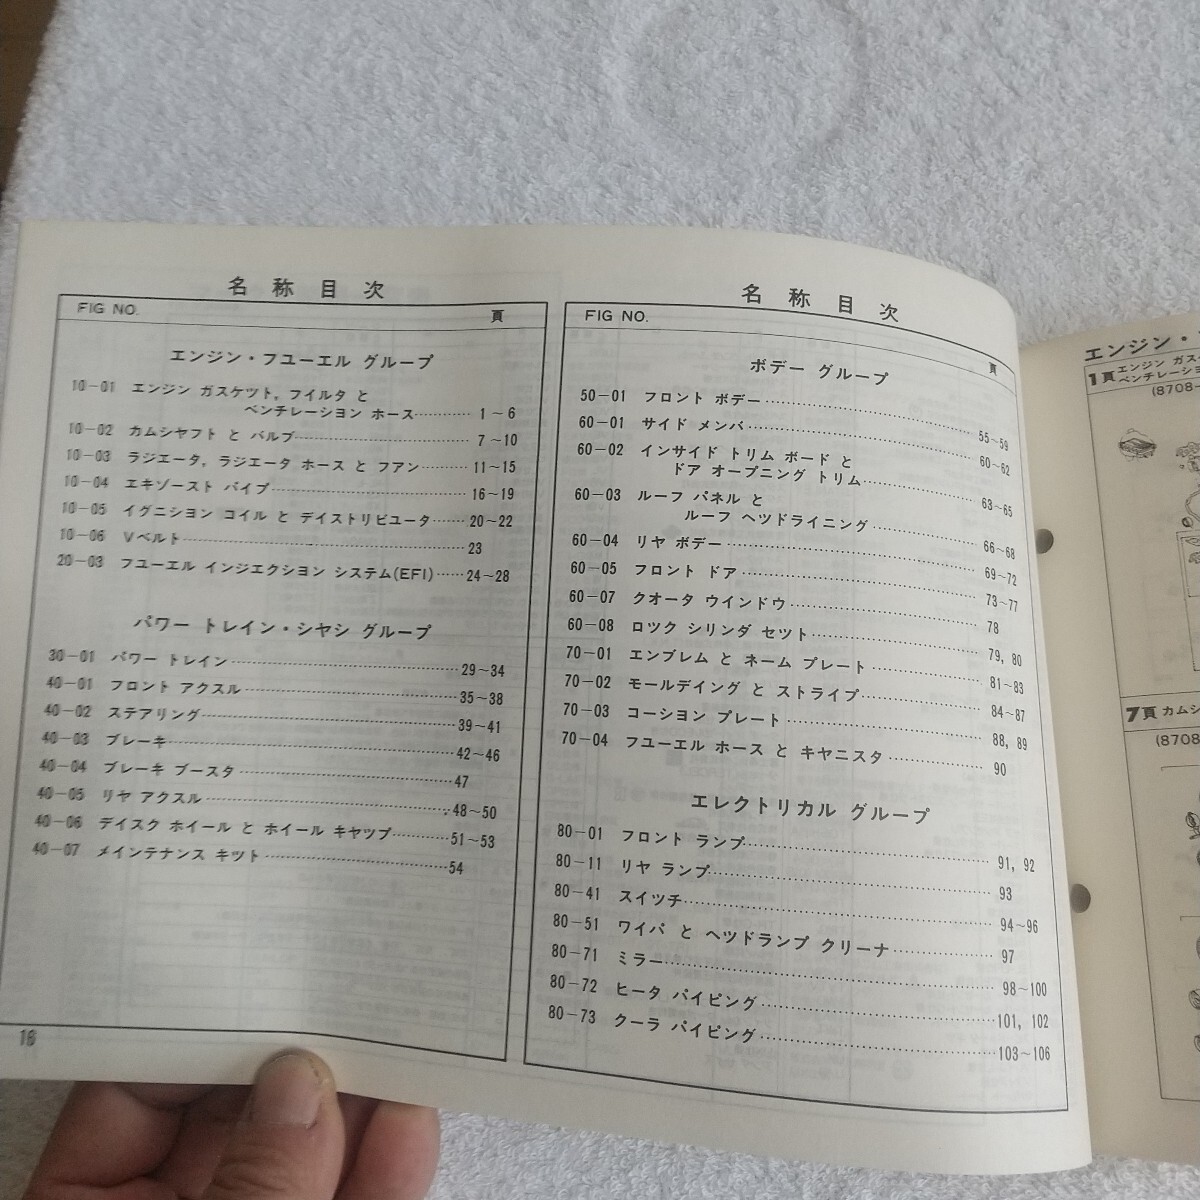 名称目次
FIG NO. 頁
エンジン・フユーエル グループ
10-01 エンジン ガスケツト, フイルタ と
ベンチレーシヨン ホース………… 1~6
10-02 カムシヤフト と バルブ………… 7~10
10-03 ラジエータ, ラジエータ ホース と フアン………… 11~15
10-04 エキゾースト パイプ………… 16~19
10-05 イグニシヨン コイル と デイストリビユータ………… 20~22
10-06 Vベルト………… 23
20-03 フユーエル インジエクシヨン システム(EFI)………… 24~28
パワー トレイン・シヤシ グループ
30-01 パワー トレイン………… 29~34
40-01 フロント アクスル………… 35~38
40-02 ステアリング………… 39~41
40-03 ブレーキ………… 42~46
40-04 ブレーキ ブースタ………… 47
40-05 リヤ アクスル………… 48~50
40-06 デイスク ホイール と ホイール キヤツプ………… 51~53
40-07 メインテナンス キツト………… 54
名称目次
FIG NO. 頁
ボデー グループ
50-01 フロント ボデー………… 55~59
60-01 サイド メンバ………… 60~62
60-02 インサイド トリム ボード と
ドア オープニング トリム………… 63~65
60-03 ルーフ パネル と
ルーフ ヘツドライニング………… 66~68
60-04 リヤ ボデー………… 69~72
60-05 フロント ドア………… 73~77
60-07 クオータ ウインドウ………… 78
60-08 ロツク シリンダ セツト………… 79, 80
70-01 エンブレム と ネーム プレート………… 81~83
70-02 モールデイング と ストライプ………… 84~87
70-03 コーシヨン プレート………… 88, 89
70-04 フユーエル ホース と キヤニスタ………… 90
エレクトリカル グループ
80-01 フロント ランプ………… 91, 92
80-11 リヤ ランプ………… 93
80-41 スイツチ………… 94~96
80-51 ワイパ と ヘツドランプ クリーナ………… 97
80-71 ミラー………… 98~100
80-72 ヒータ パイピング………… 101, 102
80-73 クーラ パイピング………… 103~106
エンジン・
1頁 エンジン ガス
ベンチレーシヨ
(8708-
7頁 カムシ
(8708